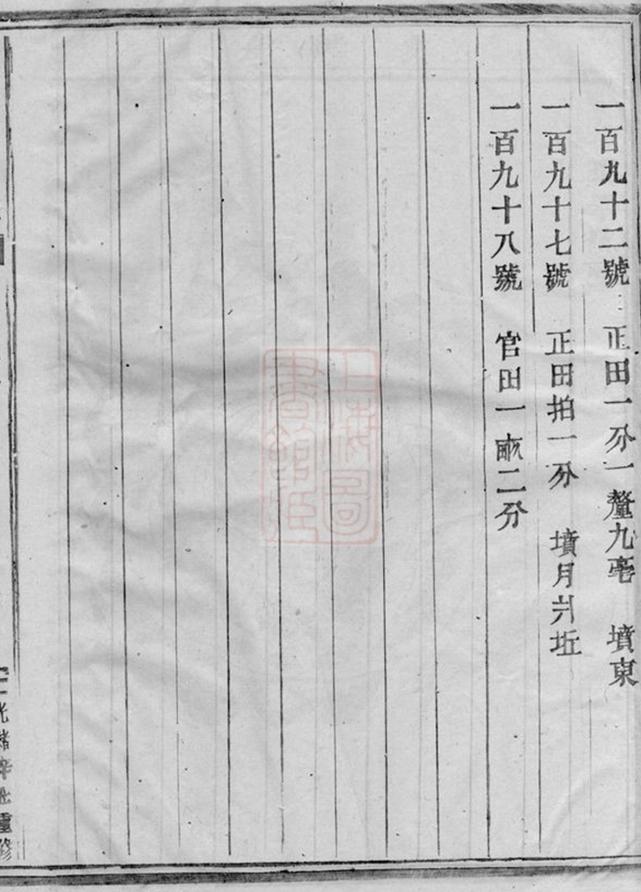 一百九十二號 正田一分一釐九毫 墳東
一百九十七號 正田拍一分 墳月爿坵
一百九十八號 官田一畝二分
光緒辛丑重修